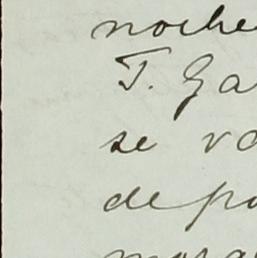 noche
T. Ga
se va
depo